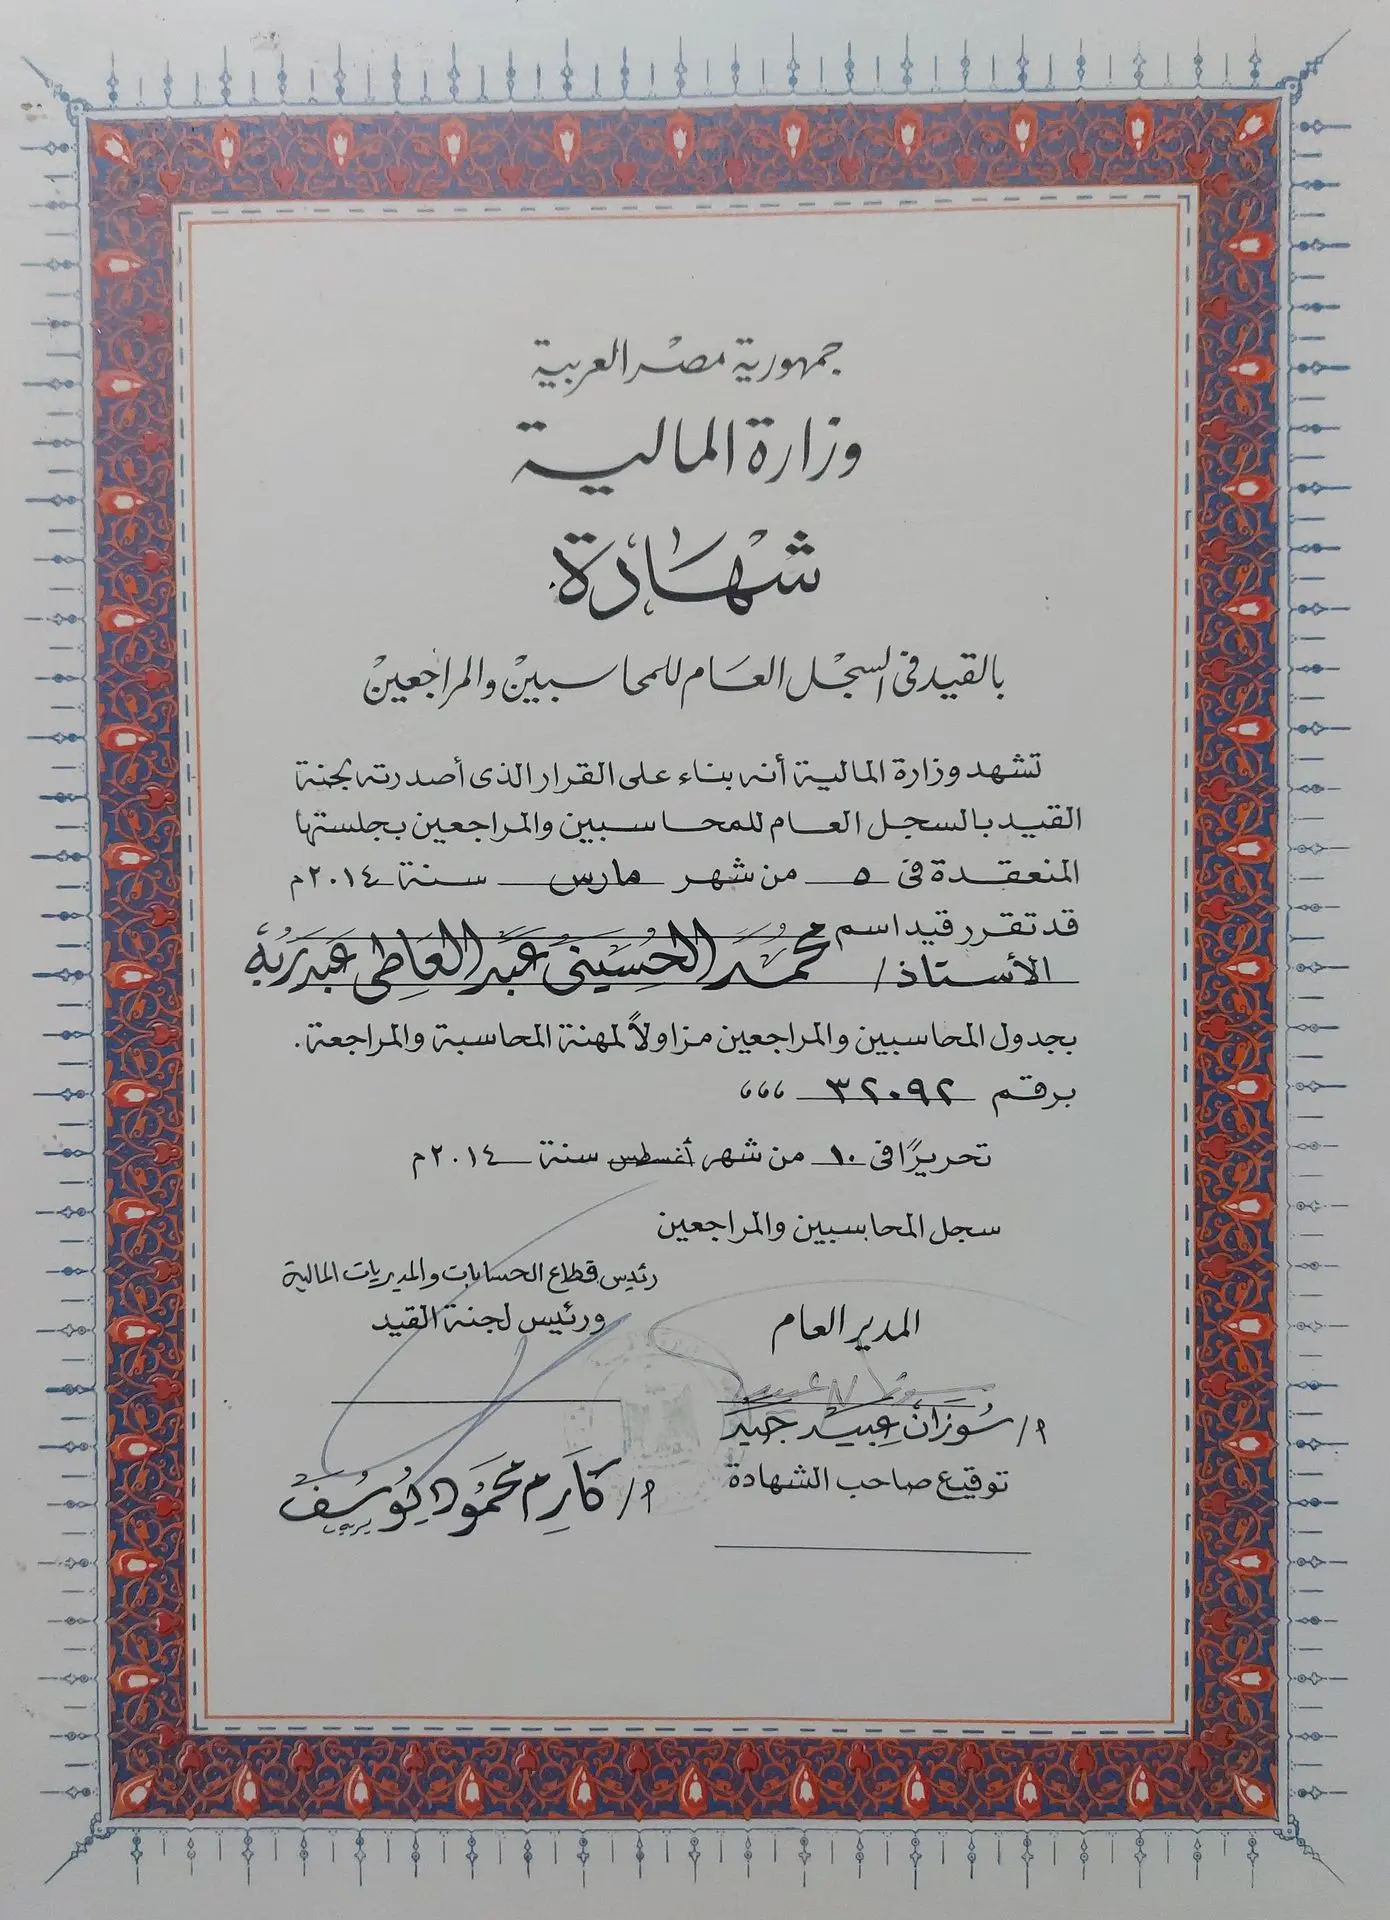 جمهورية مصر العربية
وزارة المالية
شهادة
بالقيد في السجل العام للمحاسبين والمراجعين
تشهد وزارة المالية أنه بناء على القرار الذى أصدرته لجنة
القيد بالسجل العام للمحاسبين والمراجعين بجلستها
المنعقدة فى ٥ من شهر مارس سنة ٢٠١٤م
قد تقرر قيد اسم
الأستاذ / محمد الحسينى عبد العاطى عبد ربه
بجدول المحاسبين والمراجعين مزاولاً لمهنة المحاسبة والمراجعة.
برقم ٣٢٠٩٢ ،،،
تحريرًا فى ١٠ من شهر أغسطس سنة ٢٠١٤م
سجل المحاسبين والمراجعين
رئيس قطاع الحسابات والمديريات المالية
ورئيس لجنة القيد
المدير العام
م/ سوزان عبيد
توقيع صاحب الشهادة
م/ كارم محمود يوسف